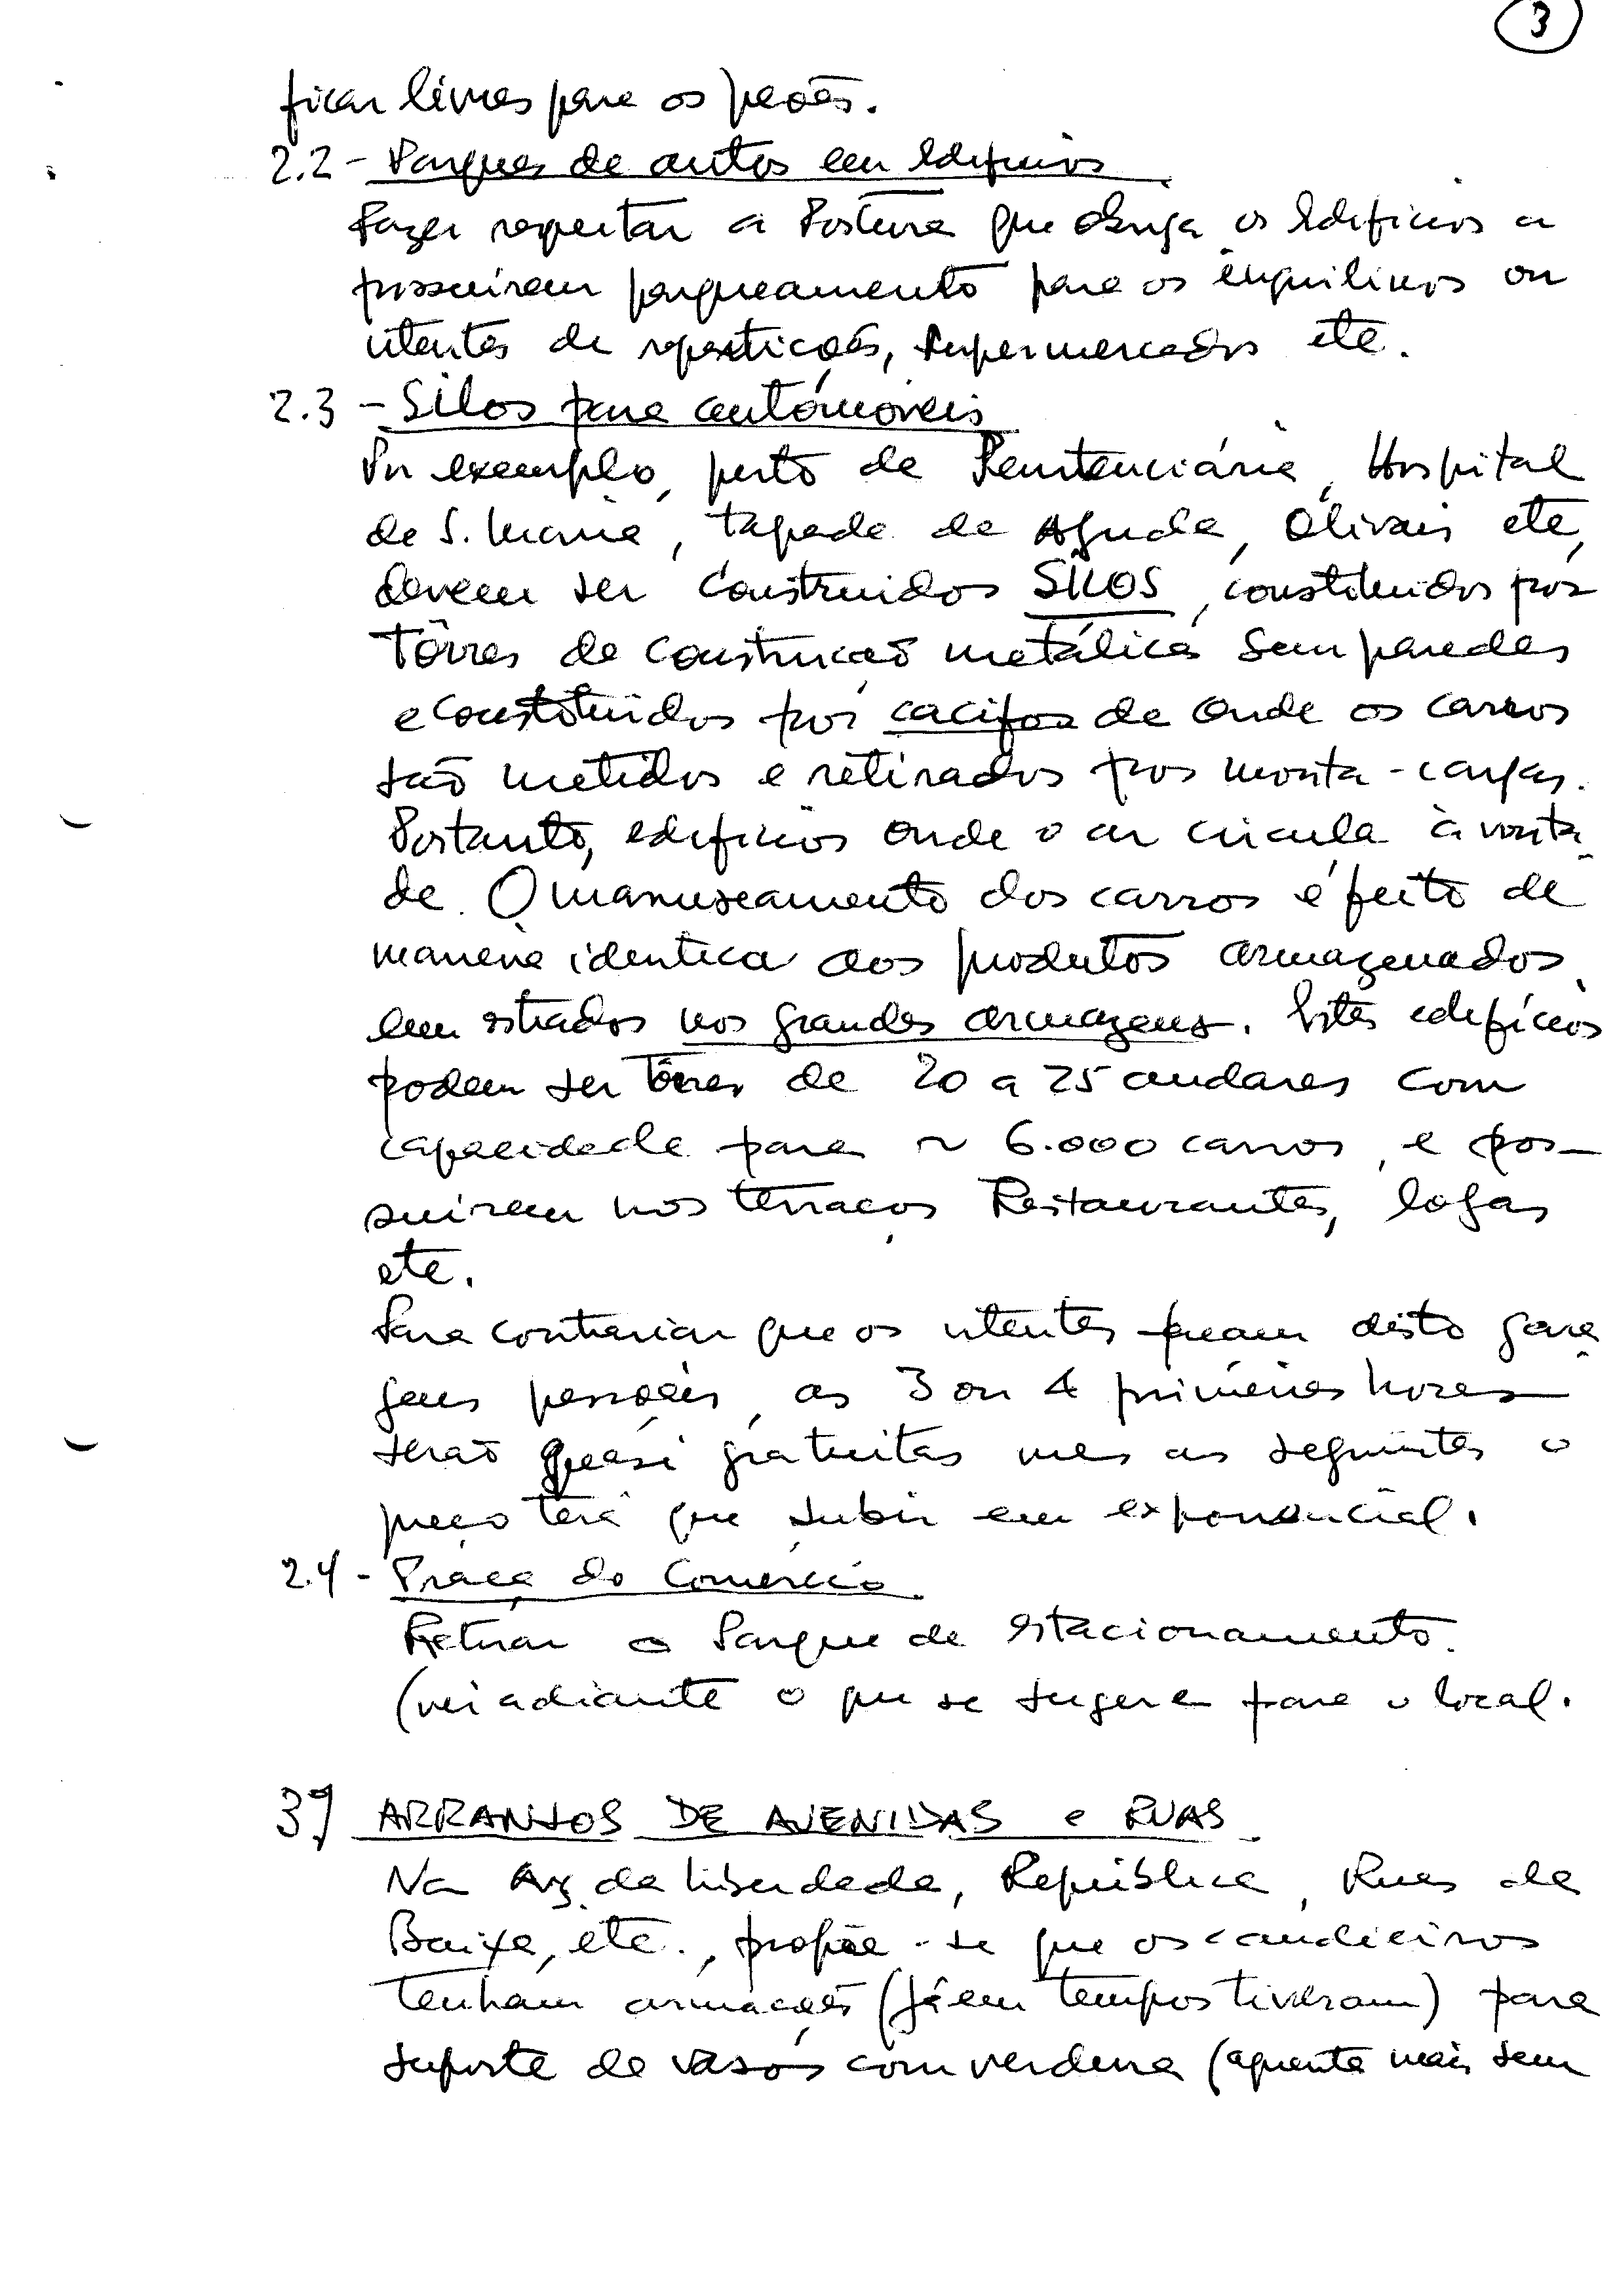 3
ficar livres para os peões.
2.2 - Parques de autos em edifícios
Fazer respeitar a Postura que obriga os edifícios a
possuirem parqueamento para os inquilinos ou
utentes de repartições, supermercados etc.
2.3 - Silos para automóveis
Por exemplo, perto da Penitenciária, Hospital
de S. Maria, tapada da Ajuda, Olivais etc,
devem ser construidos SILOS, constituidos por
Tôrres de construção metálica sem paredes
e constituidos por cacifos de onde os carros
são metidos e retirados por monta-cargas.
Portanto, edifícios onde o ar circula à vonta-
de. O manuseamento dos carros é feito de
maneira identica aos produtos armazenados
em estrados nos grandes armazens. Estes edifícios
podem ser Tôrres de 20 a 25 andares com
capacidade para ~ 6.000 carros, e pos-
suirem nos terraços Restaurantes, lojas
etc.
Para contrariar que os utentes façam disto gara-
gens pessoais, as 3 ou 4 primeiras horas
serão quasi gratuitas mas as seguintes o
preço terá que subir em exponencial.
2.4 - Praça do Comércio
Retirar o Parque de estacionamento.
(ver adiante o que se sugere para o local.
3º) ARRANJOS DE AVENIDAS e RUAS
Na Av. da Liberdade, República, Ruas da
Baixa, etc., propõe-se que os candieiros
tenham armações (já em tempos tiveram) para
suporte de vasos com verdura (aguenta mais sem